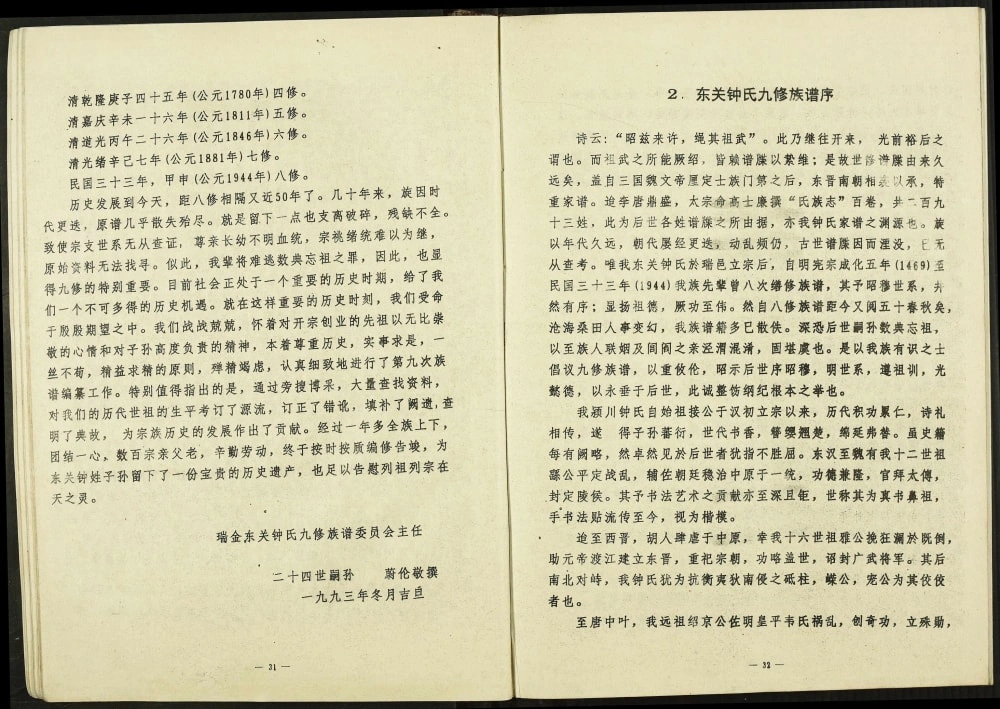 清乾隆庚子四十五年(公元1780年)四修。
清嘉庆辛未一十六年(公元1811年)五修。
清道光丙午二十六年(公元1846年)六修。
清光绪辛己七年(公元1881年)七修。
民国三十三年，甲申(公元1944年)八修。
历史发展到今天，距八修相隔又近50年了。几十年来，旋因时
代更迭，原谱几乎散失殆尽。就是留下一点也支离破碎，残缺不全。
致使宗支世系无从查证，尊亲长幼不明血统，宗祧绪统难以为继，
原始资料无法找寻。似此，我辈将难逃数典忘祖之罪，因此，也显
得九修的特别重要。目前社会正处于一个重要的历史时期，给了我
们一个不可多得的历史机遇。就在这样重要的历史时刻，我们受命
于殷殷期望之中。我们战战兢兢，怀着对开宗创业的先祖以无比崇
敬的心情和对子孙高度负责的精神，本着尊重历史，实事求是，一
丝不苟，精益求精的原则，殚精竭虑，认真细致地进行了第九次族
谱编纂工作。特别值得指出的是，通过旁搜博采，大量查找资料，
对我们的历代世祖的生平考订了源流，订正了错讹，填补了阙遗，查
明了典故，为宗族历史的发展作出了贡献。经过一年多全族上下，
团结一心、数百宗亲父老，辛勤劳动，终于按时按质编修告竣，为
东关钟姓子孙留下了一份宝贵的历史遗产，也足以告慰列祖列宗在
天之灵。
瑞金东关钟氏九修族谱委员会主任
二十四世嗣孙　蒟伦敬撰
一九九三年冬月吉旦
— 31 —
2．东关钟氏九修族谱序
诗云：“昭兹来许，绳其祖武”。此乃继往开来，光前裕后之
谓也。而祖武之所能厥绍，皆赖谱牒以繁维；是故世谱牒由来久
远矣，盖自三国魏文帝厘定士族门第之后，东晋南朝相以承，特
重家谱。迨李唐鼎盛，太宗命高士廉撰“氏族志”百卷，共二百九
十三姓，此为后世各姓谱牒之所由据，亦我钟氏家谱之渊源也。旋
以年代久远，朝代屡经更迭，动乱频仍，古世谱牒因而湮没，已无
从查考。唯我东关钟氏於瑞邑立宗后，自明宪宗成化五年(1469)至
民国三十三年(1944)我族先辈曾八次缮修族谱，其予昭穆世系，井
然有序；显扬祖德，厥功至伟。然自八修族谱距今又阅五十春秋矣，
沧海桑田人事变幻，我族谱籍多巳散佚。深恐后世嗣孙数典忘祖，
以至族人联姻及闾阎之亲泾渭混淆，固堪虞也。是以我族有识之士
倡议九修族谱，以重攸伦，昭示后世序昭穆，明世系，遵祖训，光
懿德，以永垂于后世，此诚整饬纲纪根本之举也。
我颍川钟氏自始祖接公于汉初立宗以来，历代积功累仁，诗礼
相传，遂　得子孙蕃衍，世代书香，簪缨翘楚，绵延弗替。虽史籍
每有阙略，然卓然见於后世者犹指不胜屈。东汉至魏有我十二世祖
繇公平定战乱，辅佐朝廷穆治中原于一统，功德兼隆，官拜太傅，
封定陵侯。其予书法艺术之贡献亦至深且钜，世称其为真书鼻祖，
手书法贴流传至今，视为楷模。
迨至西晋，胡人肆虐于中原，幸我十六世祖雅公挽狂澜於既倒，
助元帝渡江建立东晋，重祀宗朝，功略盖世，诏封广武将军。其后
南北对峙，我钟氏犹为抗衡夷狄南侵之砥柱，嵘公，宪公为其佼佼
者也。
至唐中叶，我远祖绍京公佐明皇平韦氏祸乱，创奇功，立殊勋，
— 32 —